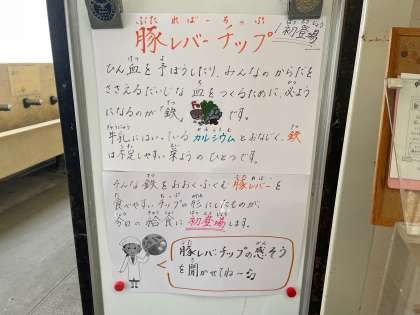 豚レバーチップ
初登場
ひん血を予ぼうしたり、みんなのからだを
ささえるだいじな血をつくるために、必よう
になるのが「鉄」です。
牛乳にはいっているカルシウムとおなじく、鉄
は不足しやすい栄ようのひとつです。
そんな鉄をおおくふくむ豚レバーを
食べやすいチップの形にしたものが、
今日の給食に初登場します。
豚レバーチップの感そう
を聞かせてねー♫